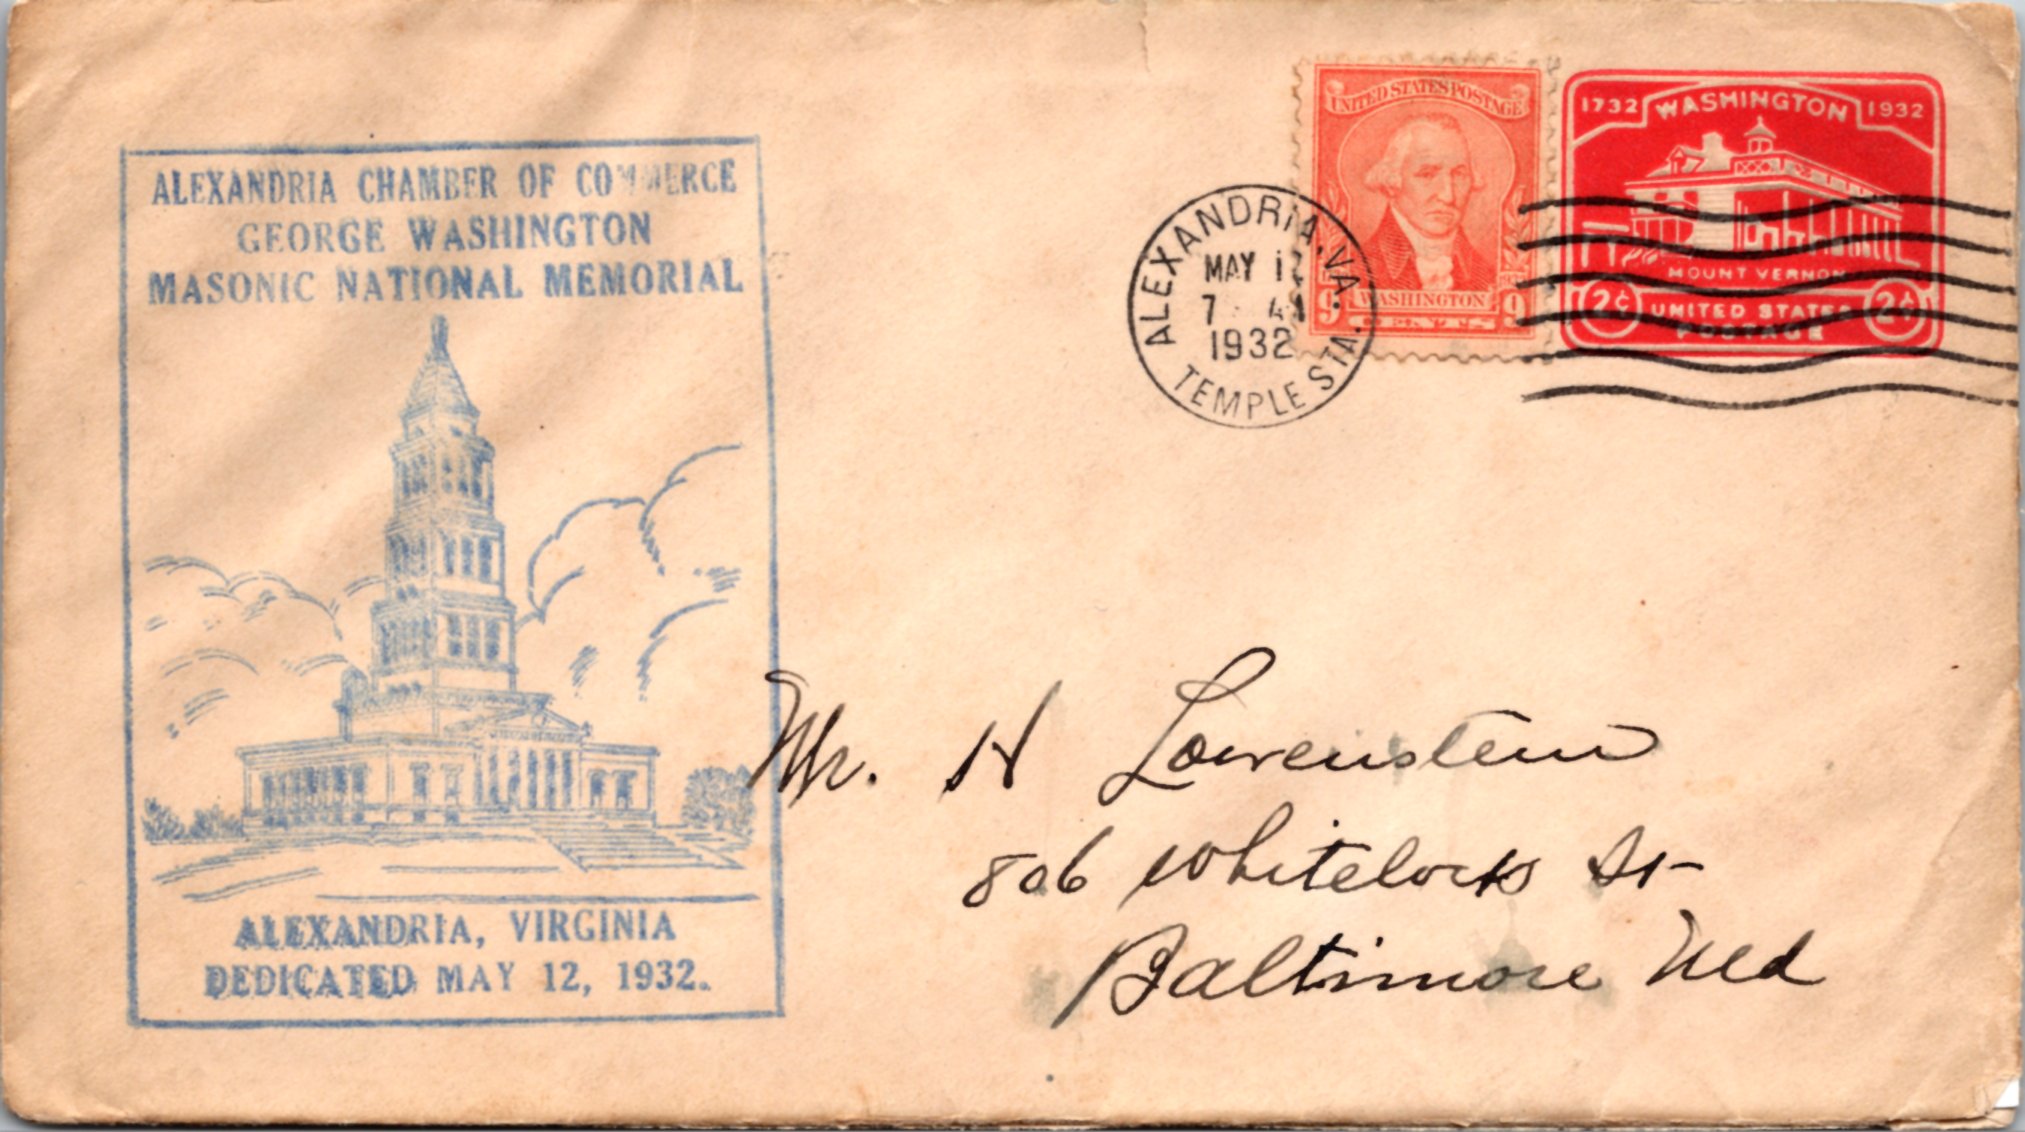 ALEXANDRIA CHAMBER OF COMMERCE
GEORGE WASHINGTON
MASONIC NATIONAL MEMORIAL
ALEXANDRIA, VIRGINIA
DEDICATED MAY 12, 1932.
ALEXANDRIA, VA.
MAY 12
7 AM
1932
TEMPLE STA.
UNITED STATES POSTAGE
1932
WASHINGTON
9 CENTS 9
1732 WASHINGTON 1932
MOUNT VERNON
2¢ UNITED STATES 2¢
POSTAGE
Mr. H Lowenstein
806 Whitelock St
Baltimore Md